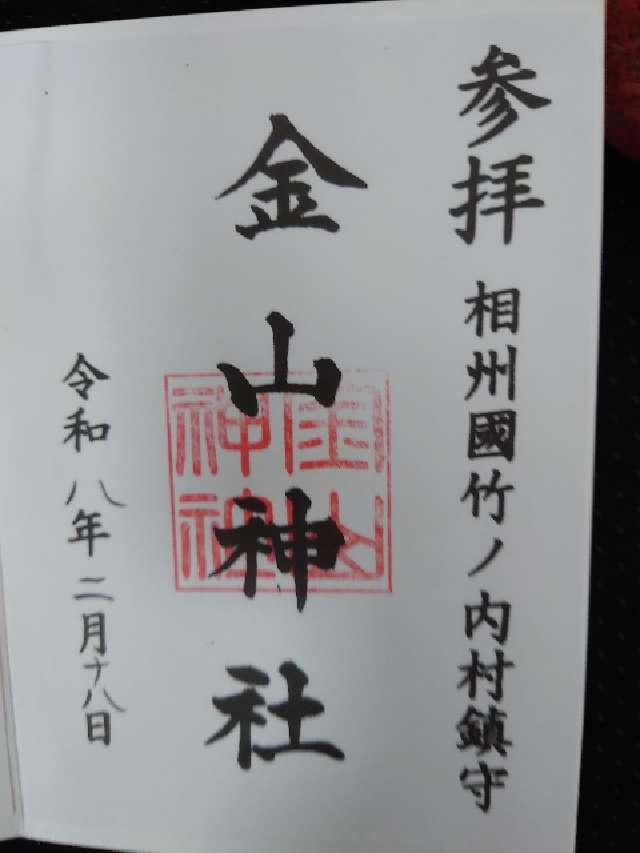 参拝 相州國竹ノ内村鎮守
金山神社
金山神社
令和八年二月十八日